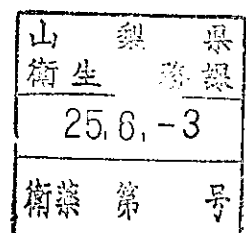 山梨県
衛生務課
25.6.-3
衛薬第 号